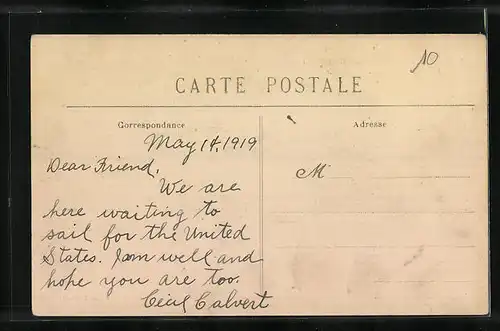 10
CARTE POSTALE
Correspondance
Adresse
May 14, 1919
Dear Friend,
We are
here waiting to
sail for the United
States. I am well and
hope you are too.
Cecil Calvert
M